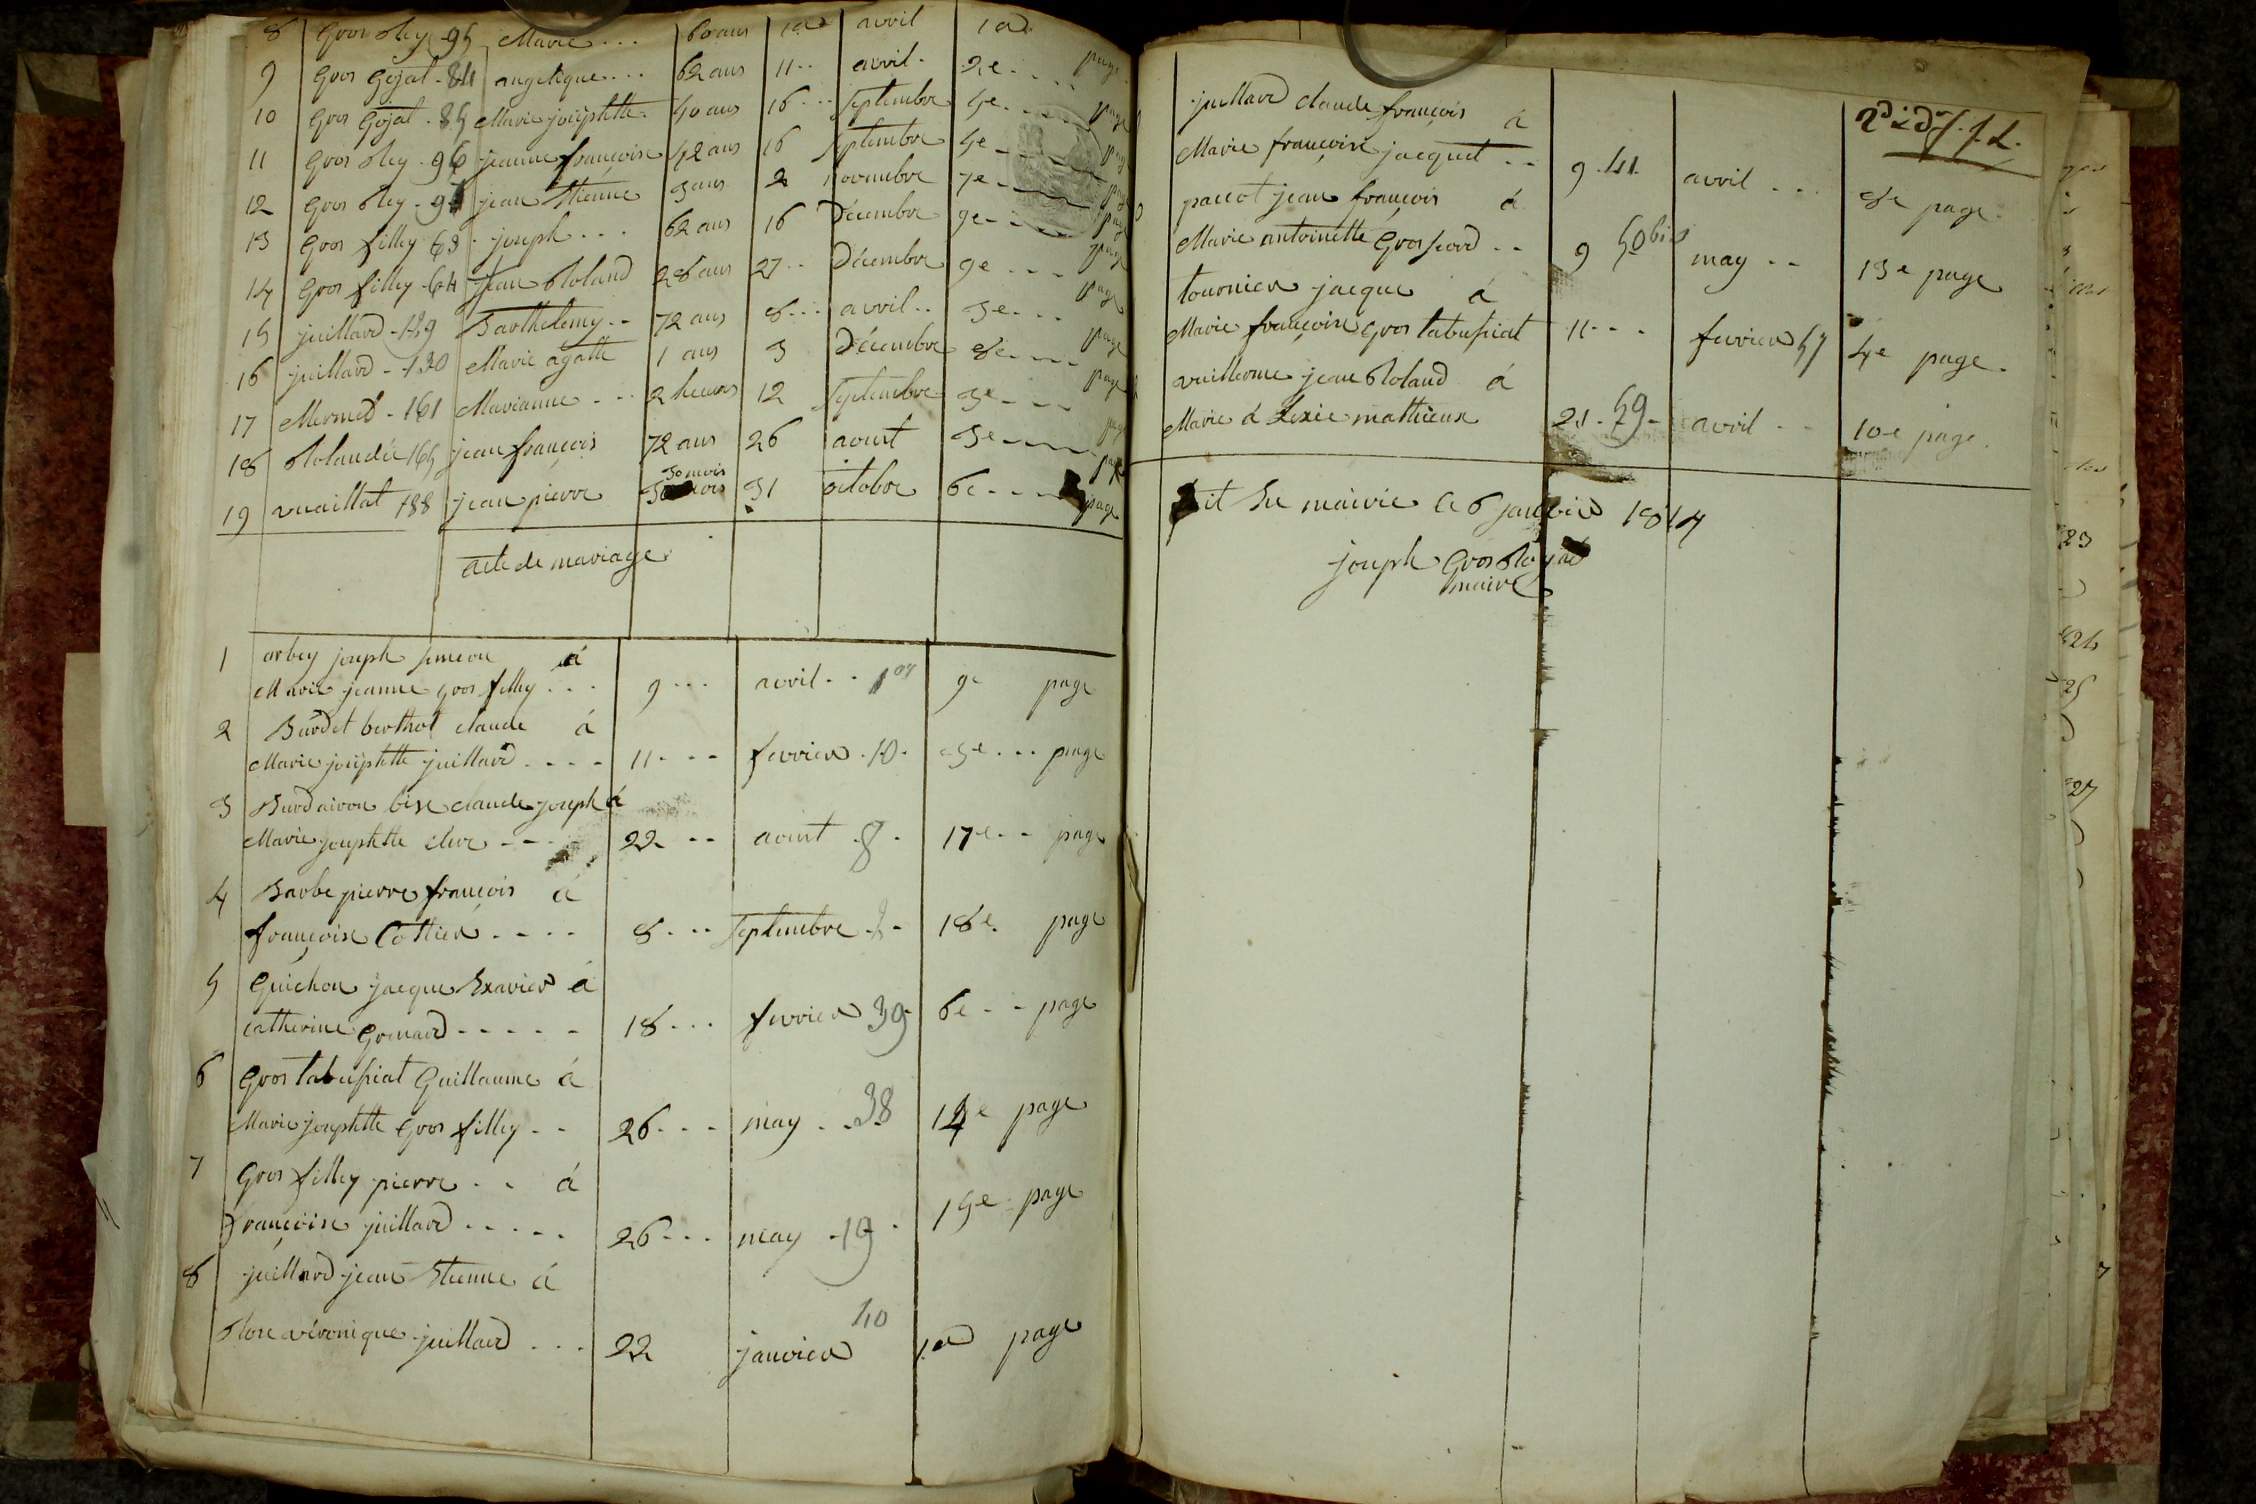 8 Gros Rey - 95 Marie ... 60 ans 1er avril 1er
9 Gros Gojat - 84 angelique .... 62 ans 11 .. avril . 2e .... page
10 Gros Gojat . 85 Marie josephtte 40 ans 16 ... septembre 4e ... page
11 Gros Rey . 96 jeanne françoise 42 ans 16 septembre 4e ---- page
12 Gros Rey - 97 jean Etienne 3 ans 2 novembre 7e ---- page
13 Gros filley 63 joseph ... 62 ans 16 Décembre 9e ---- page
14 Gros filley - 64 jean Roland 28 ans 27 .. Décembre 9e ... page
15 juillard - 129 Barthelemy .. 72 ans 8 ... avril .. 3e ... page
16 juillard - 130 Marie agathe 1 ans 3 Décembre 8e ---- page
17 Mermet - 161 Marianne ... 2 heures 12 septembre 3e --- page
18 Rolandez 165 jean françois 72 ans 26 aoust 3e ---- page
19 vuaillat 188 jean pierre 30 mois 31 octobre 6e --- page
acte de mariage
1 orbey joseph simeon á
Marie jeanne gros filley ... 9 ... avril .. 9e page
2 Burdet berthot claude á
Marie josephtte juillard .... 11 .... fevrier . 10 . 5e ... page
3 Burdairon bise claude joseph á
Marie josephtte clerc --- 22 ... aoust . 8 . 17e .. page
4 Barbe pierre françois á
françoise Cottier .... 8 ... septembre 18e. page
5 Guichon jacque Exavier á
catherine Gomard ----- 18 ... fevrier 39 6e .. page
6 Gros tabussiat Guillaume á
Marie josephtte Gros filley .. 26 ... may ... 38 14e page
7 Gros filley pierre .. á
françoise juillard ..... 26 ... may . 19 . 15e page
8 juillard jean Etienne á
Rose véronique juillard ... 22 janvier 40 1er page
juillard claude françois á
Marie françoise jacquet .. 9 . 41 . avril ... 8e page
paccot jean françois á
Marie antoinette Gros .. 9 50 bis may .. 13e page
tournier jacque á
Marie françoise Gros tabussiat 11 ... fevrier 57 4e page .
vuillerme jean Roland á
Marie á Lexie mathieux 21 . 59 - avril .. 10e page .
fait En mairie le 6 janvier 1814
joseph Gros
maire